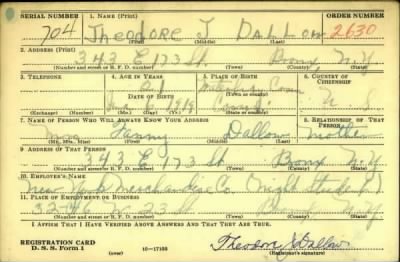 SERIAL NUMBER 1. NAME (Print) ORDER NUMBER
704 Theodore J Dallow 2630
(First) (Middle) (Last)
2. ADDRESS (Print)
343 E 173 St. Bronx N.Y
(Number and street or R. F. D. number) (Town) (County) (State)
3. TELEPHONE 4. AGE IN YEARS 5. PLACE OF BIRTH 6. COUNTRY OF CITIZENSHIP
21 Waterbury Conn
DATE OF BIRTH (Town or county)
6 1919 Conn. U S
(Exchange) (Number) (Mo.) (Day) (Yr.) (State or country)
7. NAME OF PERSON WHO WILL ALWAYS KNOW YOUR ADDRESS 8. RELATIONSHIP OF THAT PERSON
Mrs Fanny Dallow Mother
(Mr., Mrs., Miss) (First) (Middle) (Last)
9. ADDRESS OF THAT PERSON
343 E 173 St Bronx N.Y
(Number and street or R. F. D. number) (Town) (County) (State)
10. EMPLOYER'S NAME
New York Merchandise Co (Night Student)
11. PLACE OF EMPLOYMENT OR BUSINESS
32-46 W 23 St N.Y
(Number and street or R. F. D. number) (Town) (County) (State)
I AFFIRM THAT I HAVE VERIFIED ABOVE ANSWERS AND THAT THEY ARE TRUE.
REGISTRATION CARD
D. S. S. Form 1 (over) 16—17105 Theodore J Dallow
(Registrant's signature)